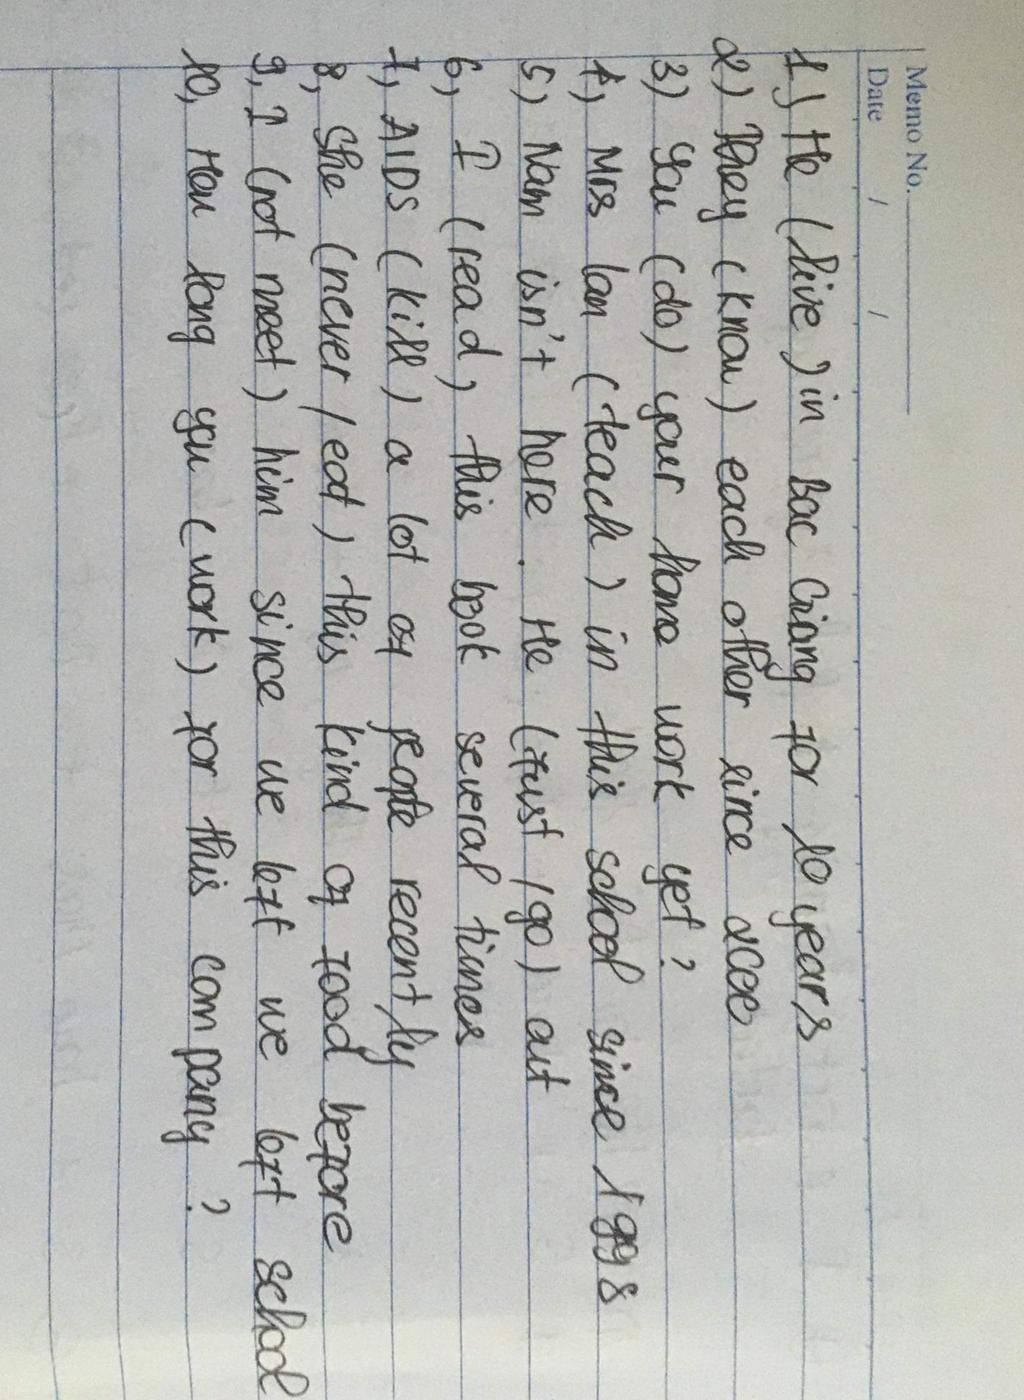 Memo No.
Date / /
1) He (live) in Bac Giang for 10 years
2) They (know) each other since 2000
3) You (do) your home work yet?
4) Mrs Lan (teach) in this school since 1998
5) Nam isn't here. He (just / go) out
6, I (read) this book several times
7, AIDS (kill) a lot of people recently
8, She (never / eat) this kind of food before
9, I (not meet) him since we left we left school
10, How long you (work) for this company?